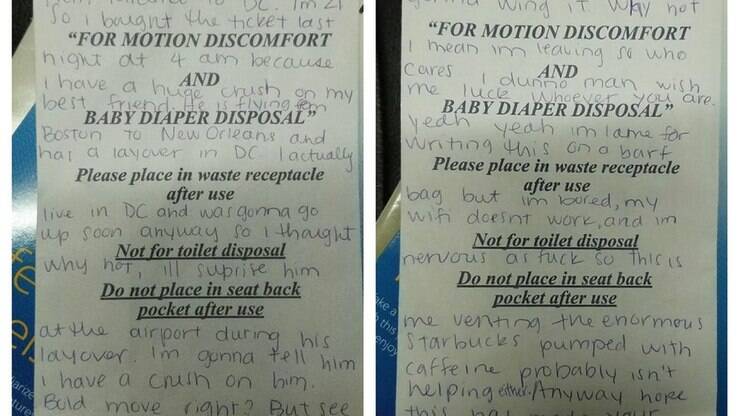 to DC. I'm 21
So i bought the ticket last
"FOR MOTION DISCOMFORT
night at 4 am because
AND
i have a huge crush on my
best friend. He is flying from
BABY DIAPER DISPOSAL"
Boston to New Orleans and
has a layover in DC I actually
Please place in waste receptacle
after use
live in DC and was gonna go
up soon anyway so I thought
Not for toilet disposal
why not, ill suprise him
Do not place in seat back
pocket after use
at the airport during his
layover. I'm gonna tell him
I have a crush on him.
Bold move right? But see
gonna wing it. Why not
"FOR MOTION DISCOMFORT
I mean im leaving so who
AND
cares I dunno man wish
me luck whoever you are.
BABY DIAPER DISPOSAL"
yeah yeah im lame for
writing this on a barf
Please place in waste receptacle
after use
bag but im bored, my
wifi doesnt work, and im
Not for toilet disposal
nervous as fuck so this is
Do not place in seat back
pocket after use
me venting the enormous
Starbucks pumped with
caffeine probably isn't
helping either. Anyway hope
this has